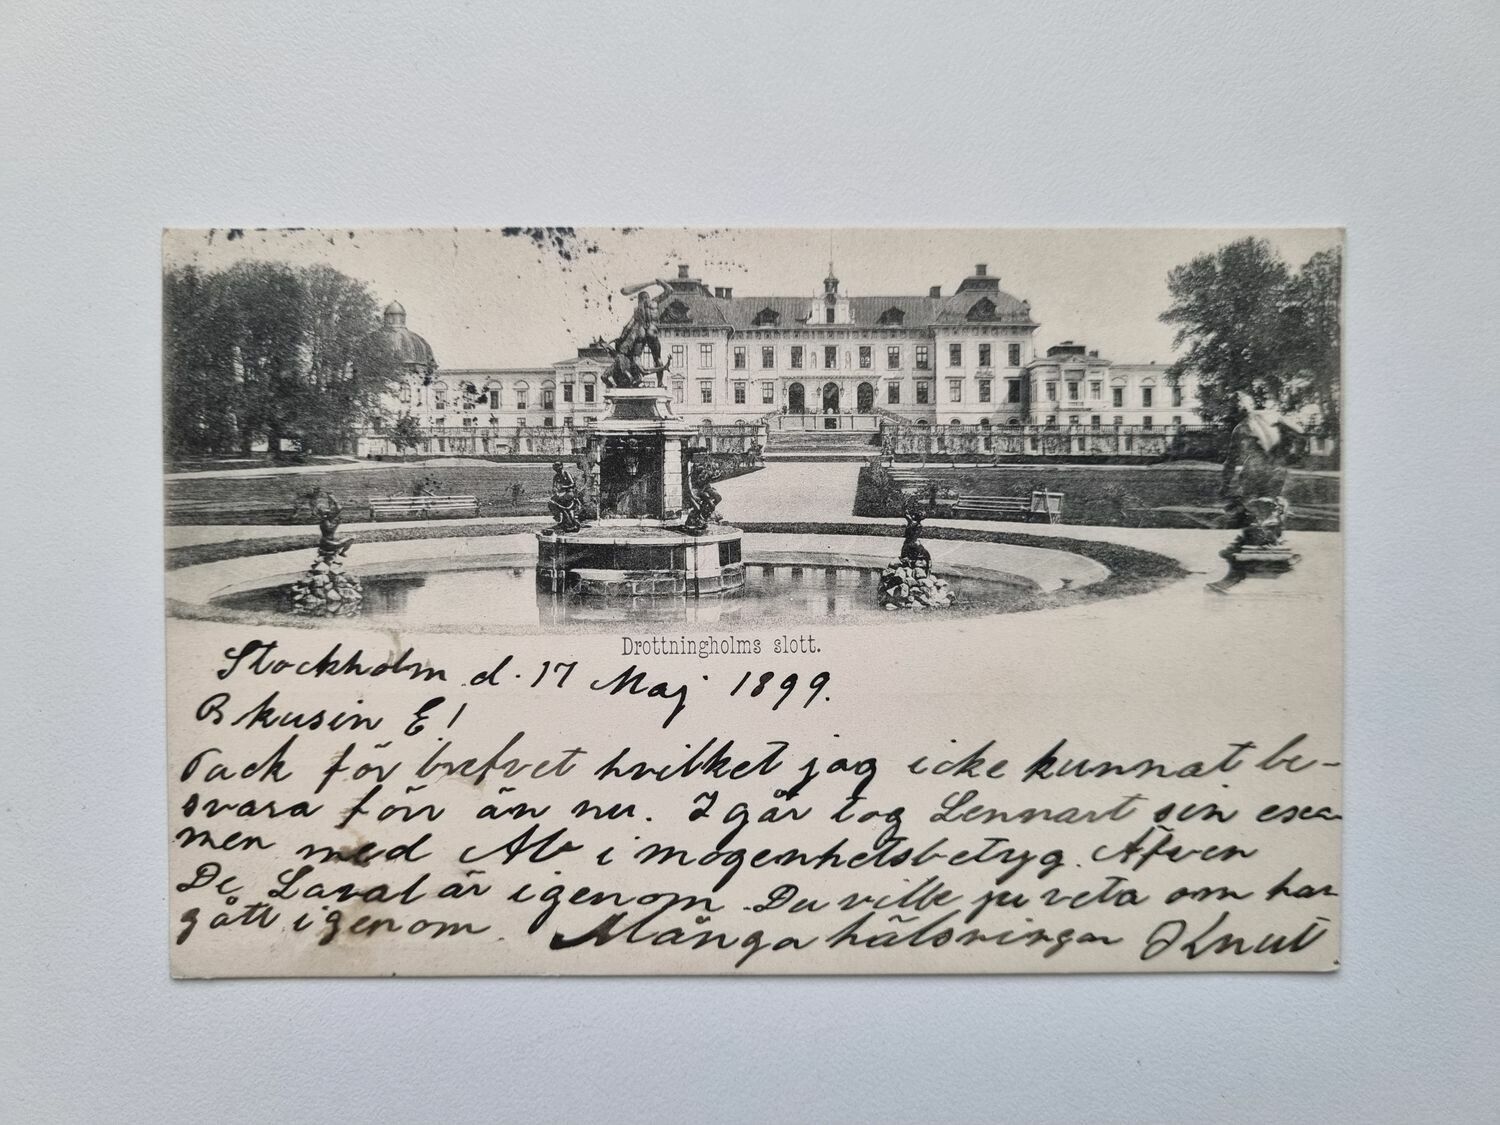 Drottningholms slott.
Stockholm d. 17 Maj 1899.
B kusin E!
Tack för brefvet hvilket jag icke kunnat be-
svara förr än nu. I går tog Lennart sin exa-
men med AB i mogenhetsbetyg. Äfven
De Laval är igenom. Du ville ju veta om han
gått igenom. Många hälsningar Knut